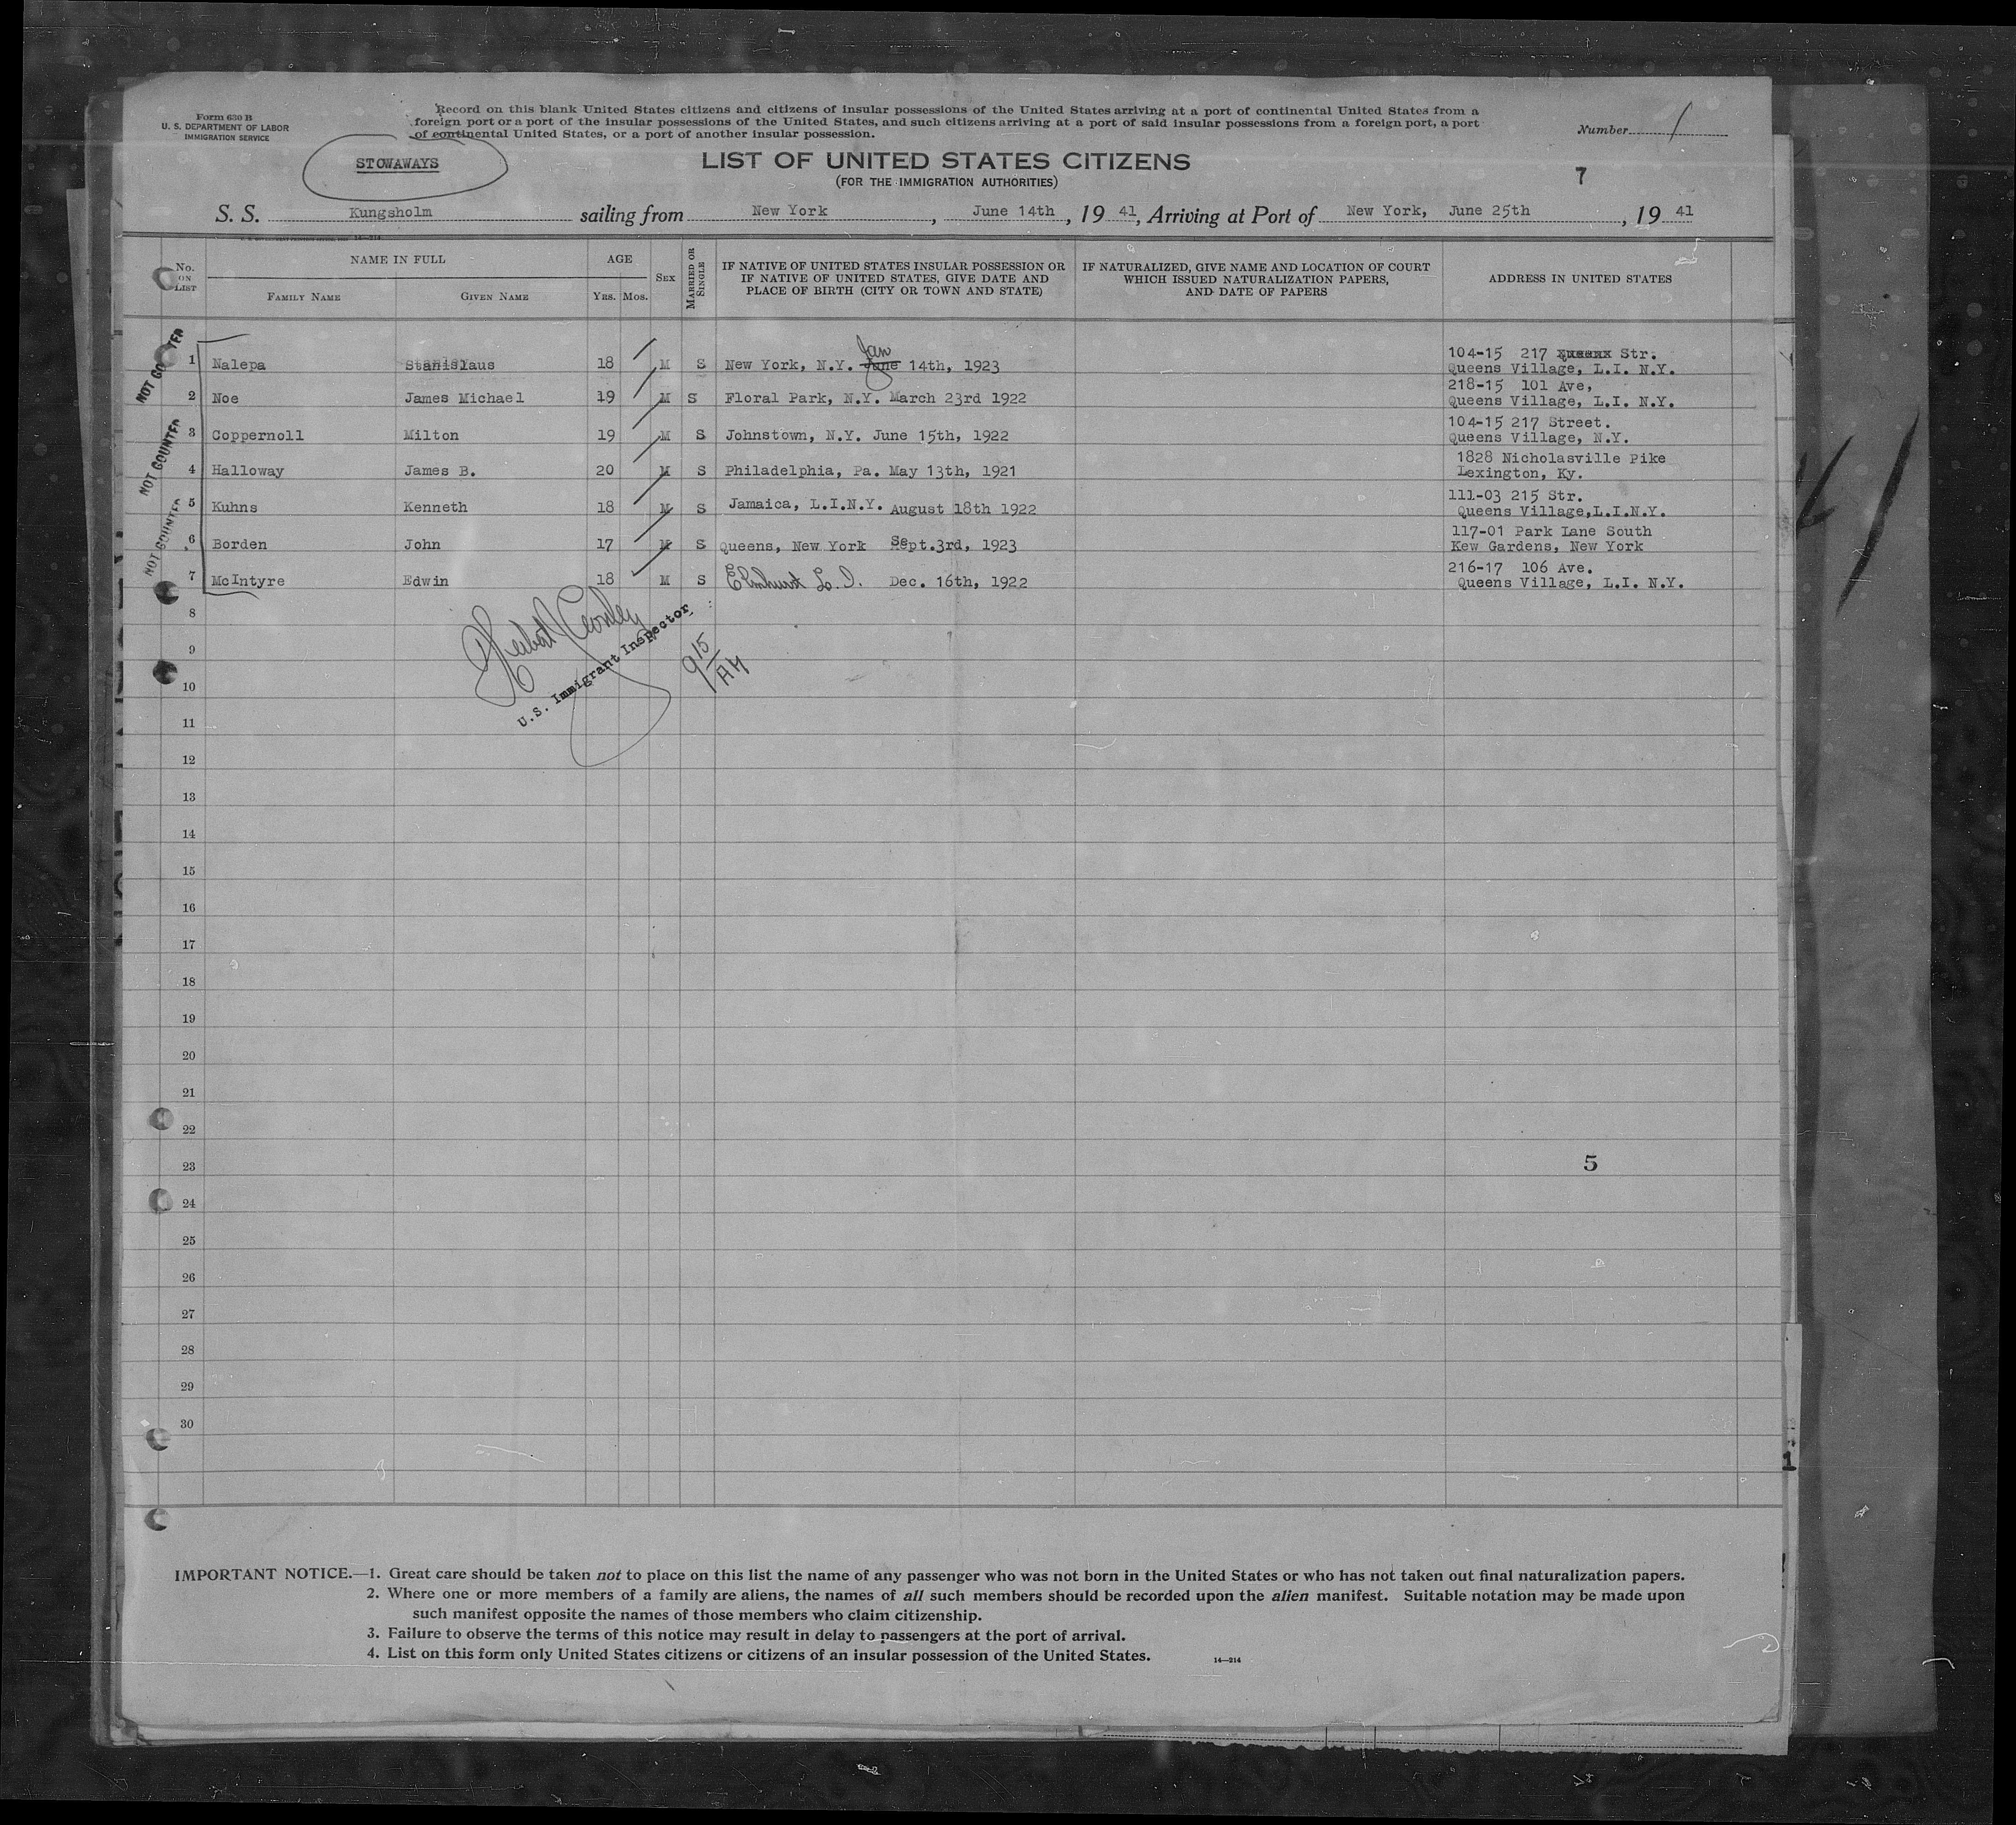 Form 630 B
U. S. DEPARTMENT OF LABOR
IMMIGRATION SERVICE
Record on this blank United States citizens and citizens of insular possessions of the United States arriving at a port of continental United States from a
foreign port or a port of the insular possessions of the United States, and such citizens arriving at a port of said insular possessions from a foreign port, a port
of continental United States, or a port of another insular possession.
Number 1
STOWAWAYS
LIST OF UNITED STATES CITIZENS
(FOR THE IMMIGRATION AUTHORITIES)
7
S. S. Kungsholm sailing from New York, June 14th, 19 41, Arriving at Port of New York, June 25th, 19 41
No. ON LIST
NAME IN FULL
FAMILY NAME GIVEN NAME
AGE
YRS. MOS.
SEX
MARRIED OR SINGLE
IF NATIVE OF UNITED STATES INSULAR POSSESSION OR
IF NATIVE OF UNITED STATES, GIVE DATE AND
PLACE OF BIRTH (CITY OR TOWN AND STATE)
IF NATURALIZED, GIVE NAME AND LOCATION OF COURT
WHICH ISSUED NATURALIZATION PAPERS,
AND DATE OF PAPERS
ADDRESS IN UNITED STATES
Jan
1 Nalepa Stanislaus 18 M S New York, N.Y. June 14th, 1923 104-15 217 Str.
Queens Village, L.I. N.Y.
2 Noe James Michael 19 M S Floral Park, N.Y. March 23rd 1922 218-15 101 Ave,
Queens Village, L.I. N.Y.
3 Coppernoll Milton 19 M S Johnstown, N.Y. June 15th, 1922 104-15 217 Street.
Queens Village, N.Y.
4 Halloway James B. 20 M S Philadelphia, Pa. May 13th, 1921 1828 Nicholasville Pike
Lexington, Ky.
5 Kuhns Kenneth 18 M S Jamaica, L.I.N.Y. August 18th 1922 111-03 215 Str.
Queens Village,L.I.N.Y.
6 Borden John 17 M S Queens, New York Sept.3rd, 1923 117-01 Park Lane South
Kew Gardens, New York
7 McIntyre Edwin 18 M S Elmhurst L.I. Dec. 16th, 1922 216-17 106 Ave.
Queens Village, L.I. N.Y.
NOT COUNTED
NOT COUNTED
NOT COUNTED
U.S. Immigrant Inspector
9 15/AM
8
9
10
11
12
13
14
15
16
17
18
19
20
21
22
23
5
24
25
26
27
28
29
30
1
IMPORTANT NOTICE.—1. Great care should be taken not to place on this list the name of any passenger who was not born in the United States or who has not taken out final naturalization papers.
2. Where one or more members of a family are aliens, the names of all such members should be recorded upon the alien manifest. Suitable notation may be made upon
such manifest opposite the names of those members who claim citizenship.
3. Failure to observe the terms of this notice may result in delay to passengers at the port of arrival.
4. List on this form only United States citizens or citizens of an insular possession of the United States.
14—214